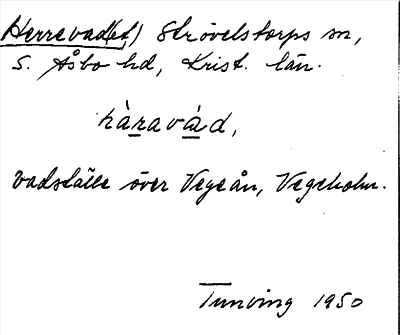 Herrevad(et) Strövelstorps sn,
S. Åsbo hd, Krist. län.
hàravàd,
vadställe över Vegeån, Vegeholm.
Tunving 1950